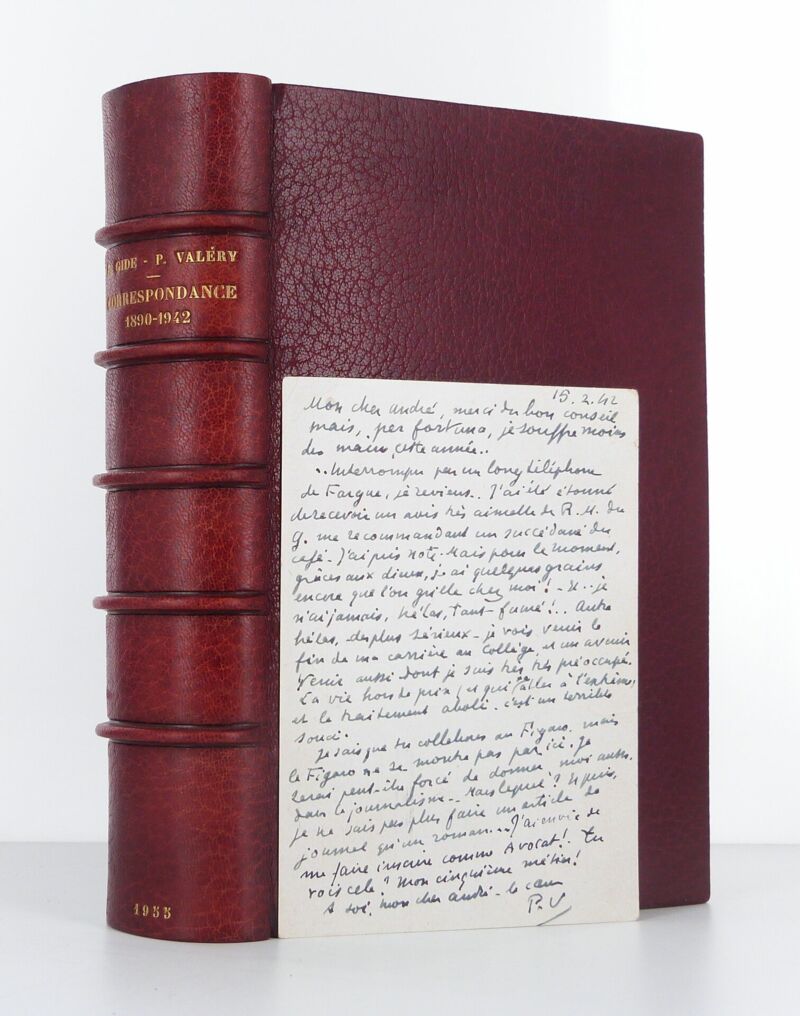 GIDE - P. VALÉRY
CORRESPONDANCE
1890-1942
1955
15.2.42
Mon cher André, merci du bon conseil
mais, per fortuna, je souffre moins
des mains cette année..
..Interrompu par un long téléphone
de Fargue, je reviens.. J'ai été étonné
de recevoir un avis très aimable de R. M. du
G. me recommandant un succédané du
café. J'ai pris note. Mais pour le moment,
grâces aux dieux, j'ai quelques grains
encore que l'on grille chez moi! - Et.. je
n'ai jamais, hélas, tant fumé!.. Autre
hélas, des plus sérieux - je vois venir la
fin de ma carrière au Collège, et un avenir
venir aussi dont je suis très très préoccupé.
La vie hors de prix, et qui va aller à l'extrême,
et le traitement aboli - c'est un terrible
souci.
Je sais que tu collabores au Figaro, mais
le Figaro ne se montre pas par ici. Je
serai peut-être forcé de donner moi aussi
dans le journalisme.. Mais lequel? Et puis,
je ne sais pas plus faire un article de
journal qu'un roman... J'ai envie de
me faire inscrire comme Avocat!. Tu
vois cela? Mon cinquième métier!
A toi, mon cher André - le cœur
P.V